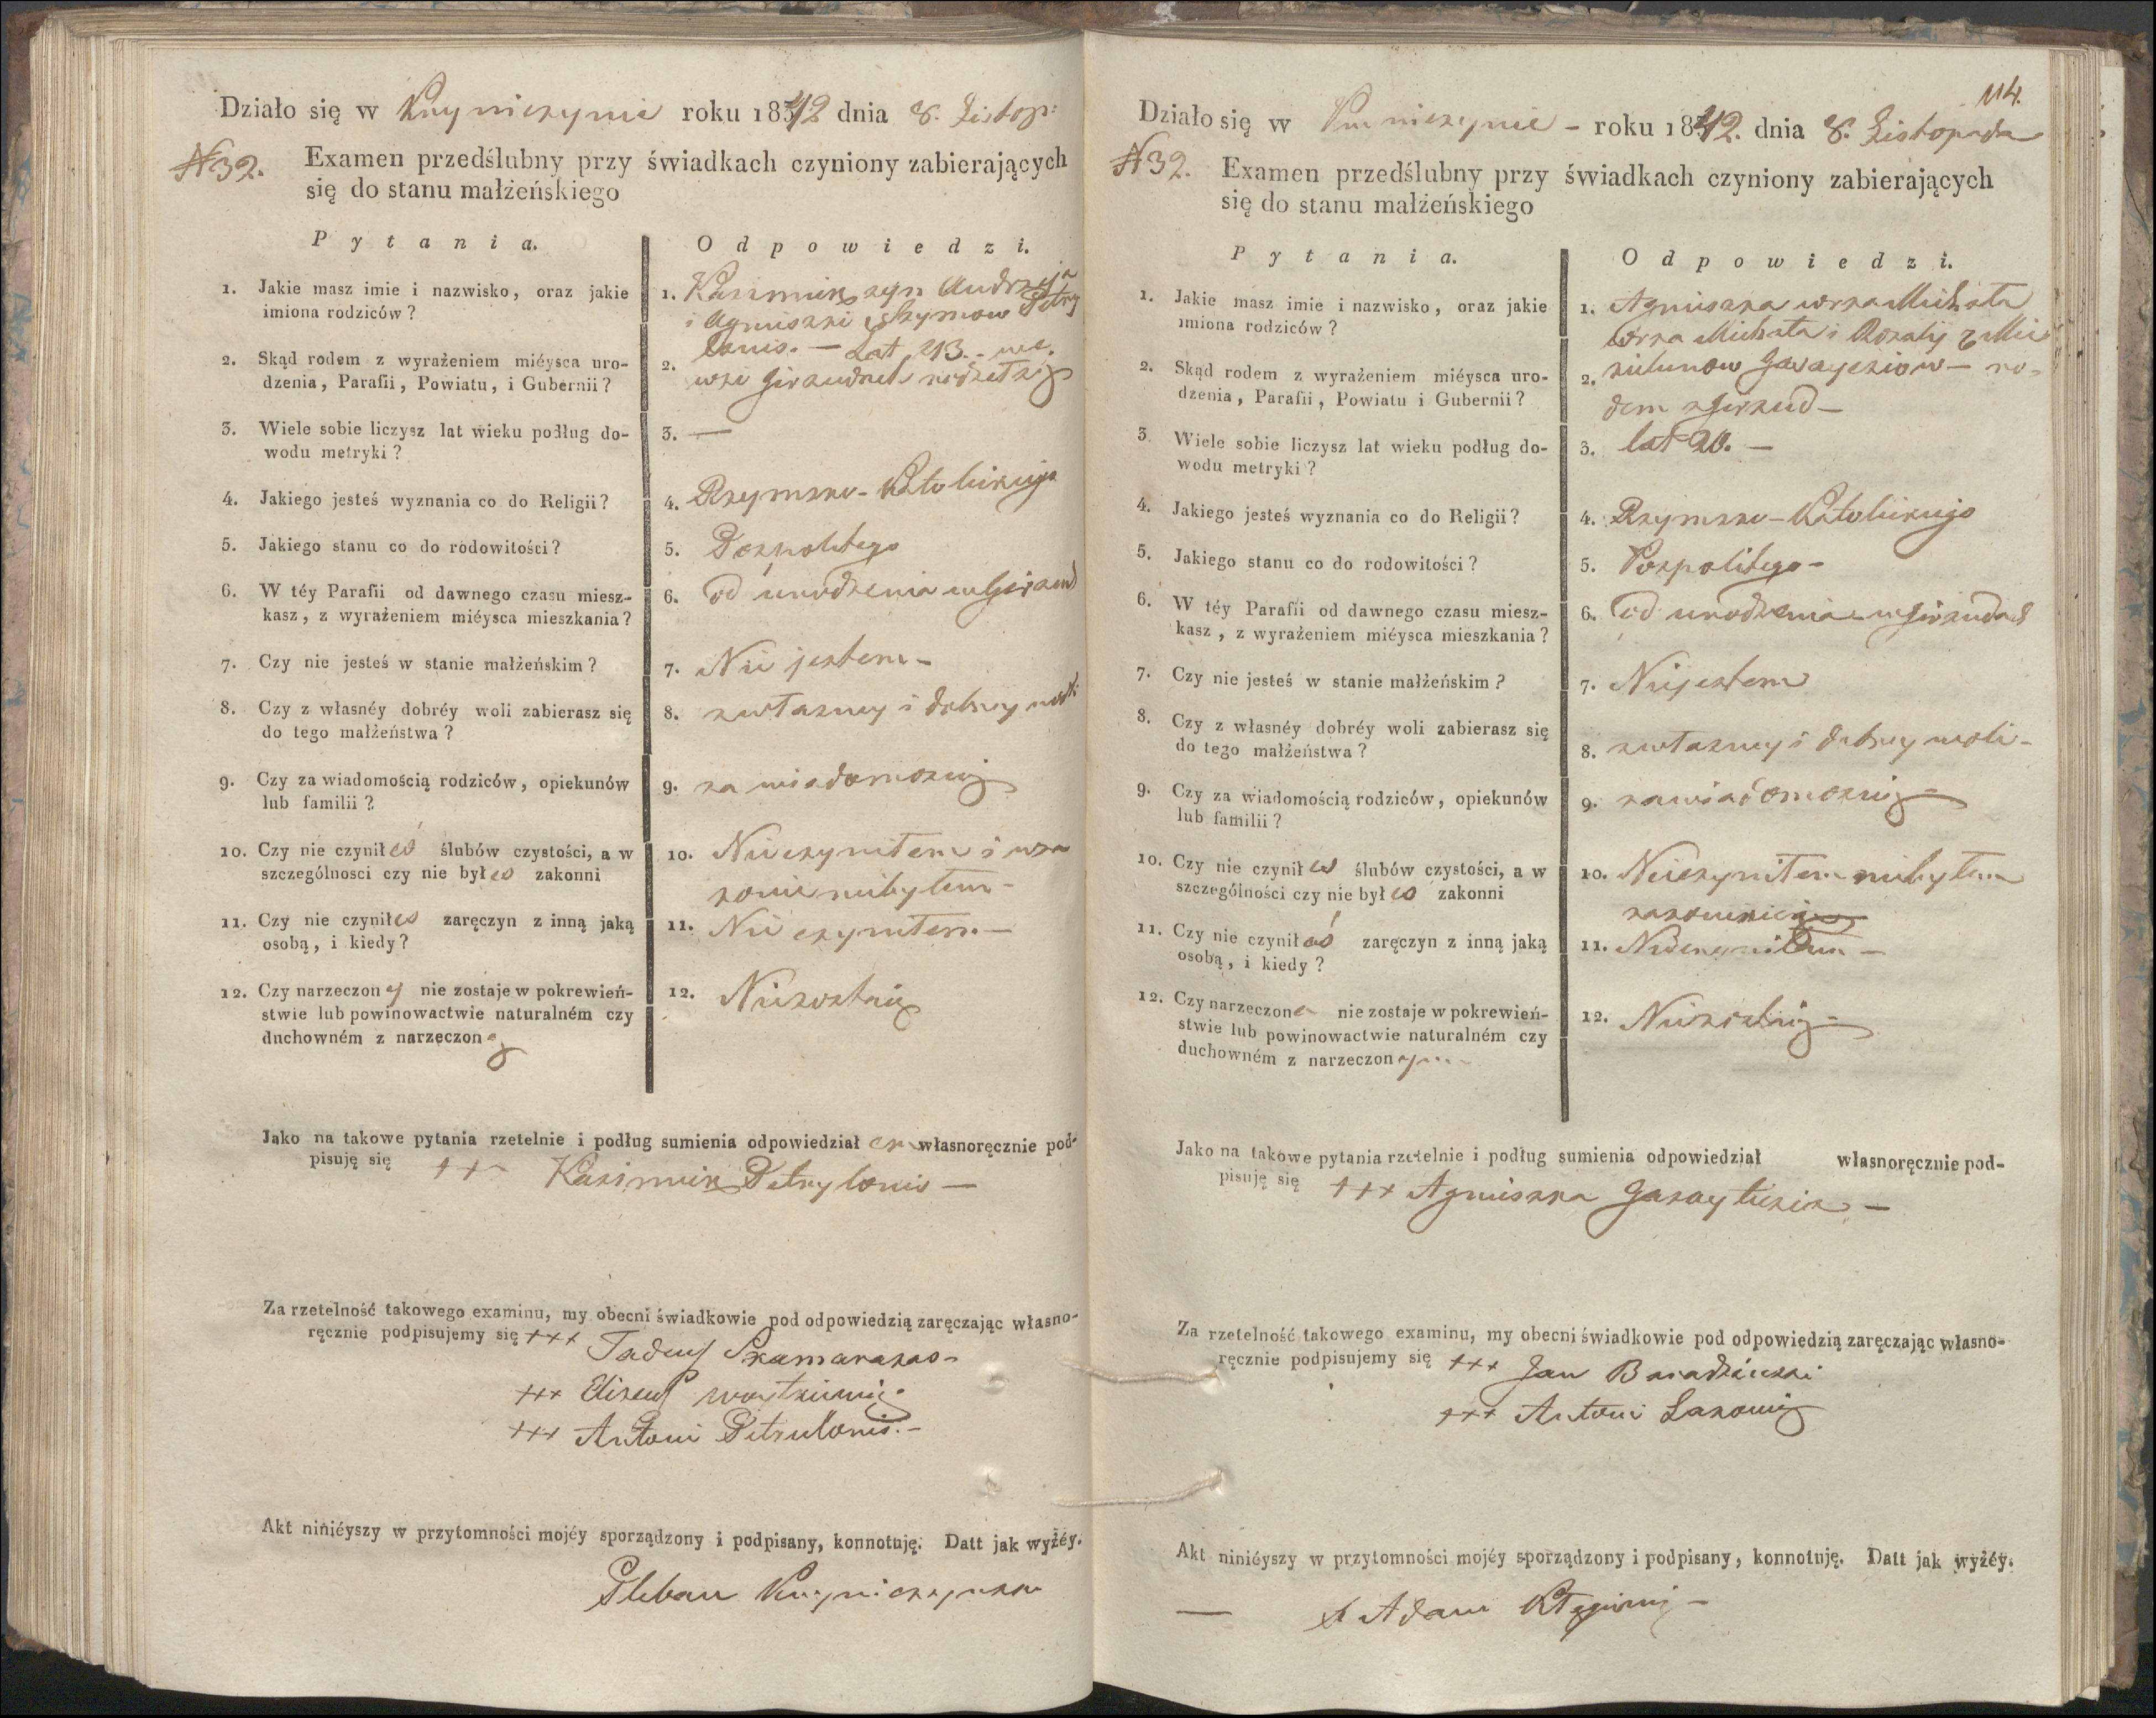 Działo się w roku 1842 dnia 8. Listop:
N 32. Examen przedślubny przy świadkach czyniony zabierających
się do stanu małżeńskiego
Pytania. Odpowiedzi.
1. Jakie masz imie i nazwisko, oraz jakie
imiona rodziców?
1. Kazimierz syn Andrzeja
i Agnieszki z Szymow Petry
lonis. — Lat 23. — we
2. Skąd rodem z wyrażeniem miéysca uro-
dzenia, Parafii, Powiatu, i Gubernii?
2. wsi Girzudach
3. Wiele sobie liczysz lat wieku podług do-
wodu metryki?
3. —
4. Jakiego jesteś wyznania co do Religii?
4. Rzymsko-Katolickiego
5. Jakiego stanu co do rodowitości?
5. Pospolitego
6. W téy Parafii od dawnego czasu miesz-
kasz, z wyrażeniem miéysca mieszkania?
6. od urodzenia w Girzud
7. Czy nie jesteś w stanie małżeńskim?
7. Nie jestem -
8. Czy z własnéy dobréy woli zabierasz się
do tego małżeństwa?
8. z własney i dobrey woli
9. Czy za wiadomością rodziców, opiekunów
lub familii?
9. za wiadomością
10. Czy nie czynił eś ślubów czystości, a w
szczególnosci czy nie był eś zakonni
10. Nie czyniłem i w za
konie niebyłem -
11. Czy nie czynił eś zaręczyn z inną jaką
osobą, i kiedy?
11. Nie czyniłem. —
12. Czy narzeczon y nie zostaje w pokrewień-
stwie lub powinowactwie naturalném czy
duchowném z narzeczon ą
12. Niezostaię
Jako na takowe pytania rzetelnie i podług sumienia odpowiedział em własnoręcznie pod-
pisuję się +++ Kazimierz Petrylonis —
Za rzetelność takowego examinu, my obecni świadkowie pod odpowiedzią zaręczając własno-
ręcznie podpisujemy się +++ Tadeusz Skamarakas -
+++ Elizeusz
+++ Antoni Petrulonis. -
Akt niniéyszy w przytomności mojéy sporządzony i podpisany, konnotuję. Datt jak wyżéy.
Pleban
114.
Działo się w - roku 1842. dnia 8. Listopada
N 32. Examen przedślubny przy świadkach czyniony zabierających
się do stanu małżeńskiego
Pytania. Odpowiedzi.
1. Jakie masz imie i nazwisko, oraz jakie
imiona rodziców?
1. Agnieszka córka Michała
córka Michała i Rozalij z
2. Skąd rodem z wyrażeniem miéysca uro-
dzenia, Parafii, Powiatu i Gubernii?
2. — ro-
dem z Girzud —
3. Wiele sobie liczysz lat wieku podług do-
wodu metryki?
3. lat 20. —
4. Jakiego jesteś wyznania co do Religii?
4. Rzymsko-Katolickiego
5. Jakiego stanu co do rodowitości?
5. Pospolitego -
6. W téy Parafii od dawnego czasu miesz-
kasz, z wyrażeniem miéysca mieszkania?
6. od urodzenia w Girzudach
7. Czy nie jesteś w stanie małżeńskim?
7. Niejestem
8. Czy z własnéy dobréy woli zabierasz się
do tego małżeństwa?
8. z własney i dobrey woli -
9. Czy za wiadomością rodziców, opiekunów
lub familii?
9. za wiadomością -
10. Czy nie czynił eś ślubów czystości, a w
szczególności czy nie był eś zakonni
10. Nieczyniłem niebyłem
zakonnicą
11. Czy nie czynił aś zaręczyn z inną jaką
osobą, i kiedy?
11. Nieczyniłem —
12. Czy narzeczon a nie zostaje w pokrewień-
stwie lub powinowactwie naturalném czy
duchowném z narzeczon ym
12. Niezostaię -
Jako na takowe pytania rzetelnie i podług sumienia odpowiedział własnoręcznie pod-
pisuję się +++ Agnieszka —
Za rzetelność takowego examinu, my obecni świadkowie pod odpowiedzią zaręczając własno-
ręcznie podpisujemy się +++ Jan
+++ Antoni
Akt niniéyszy w przytomności mojéy sporządzony i podpisany, konnotuję. Datt jak wyżéy.
— X Adam